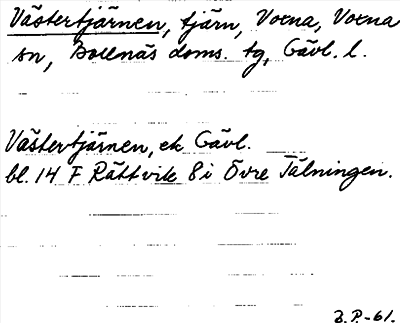 Västertjärnen, tjärn, Voxna, Voxna
sn, Bollnäs doms. tg, Gävl. l.
Västertjärnen, ek Gävl.
bl. 14 F Rättvik 8 i Övre Tälningen.
B.P.-61.